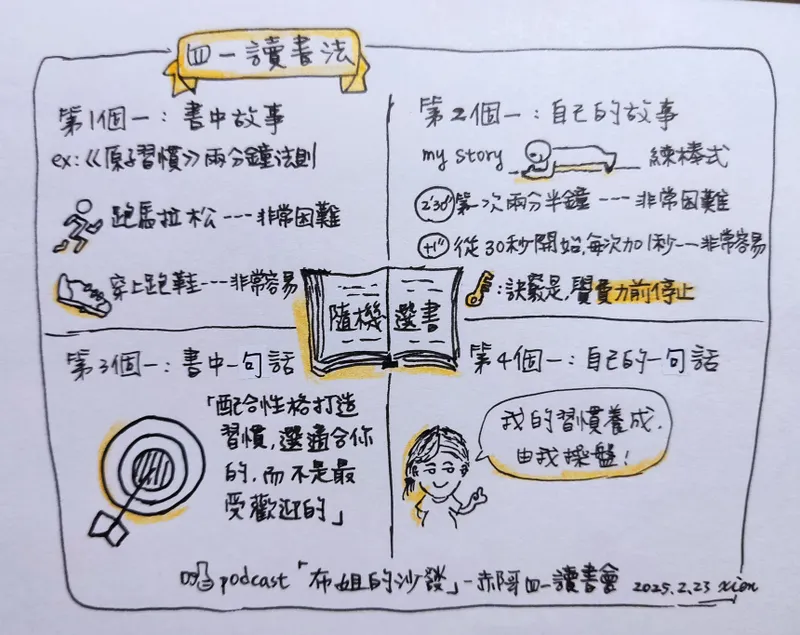 四一讀書法
第1個一：書中故事
ex:《原子習慣》兩分鐘法則
跑馬拉松---非常困難
穿上跑鞋---非常容易
第2個一：自己的故事
my story 練棒式
2'30" 第一次兩分半鐘---非常困難
+1" 從30秒開始,每次加1秒--非常容易
:訣竅是,覺費力前停止
隨機選書
第3個一：書中一句話
「配合性格打造
習慣,選適合你
的,而不是最
受歡迎的」
第4個一：自己的一句話
我的習慣養成,
由我操盤!
podcast「布姐的沙發」-赤阿四一讀書會 2025.2.23 xien